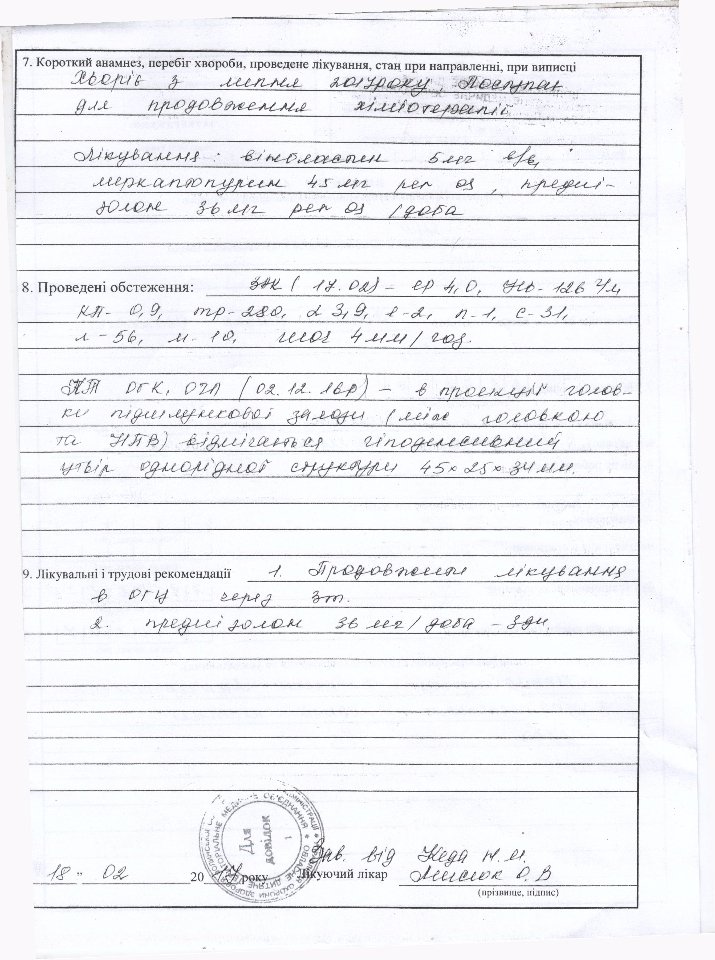 7. Короткий анамнез, перебіг хвороби, проведене лікування, стан при направленні, при виписці
Хворіє з липня року, Поступає
для продовження хіміотерапії
Лікування: вінбластин 5 мг в/в,
меркаптопурин 45 мг per os, предні-
золон 36 мг per os /доба
8. Проведені обстеження: ЗАК (17.02) – ер 4,0, Hb- 126 г/л
КП- 0,9, тр-280, L 3,9, е-2, п-1, с-31,
л-56, м-10, ШОЕ 4 мм/год.
КТ ОГК, ОЧП (02.12.16р) – в проекції голов-
ки підшлункової залози (між головкою
та НПВ) відмічається гіподенсивний
утвір однорідної структури 45×25×34 мм.
9. Лікувальні і трудові рекомендації 1. Продовження лікування
в ОГЦ через
2. преднізолон 36 мг/доба –
Для
довідок
1
Зав. від Кеда Н.М.
18 - 02 20 17 року Лікуючий лікар О.В
(прізвище, підпис)